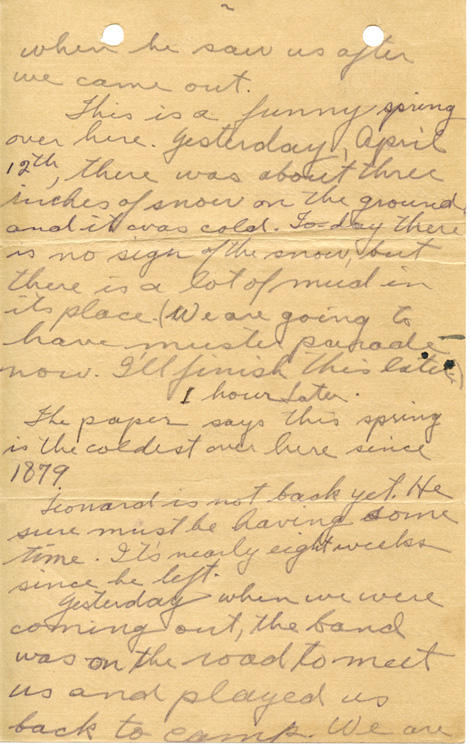 when he saw us after
we came out.
This is a funny spring
over here. Yesterday, April
12th, there was about three
inches of snow on the ground,
and it was cold. To-day there
is no sign of the snow, but
there is a lot of mud in
its place. (We are going to
have muster parade
now. I'll finish this later.)
1 hour Later.
The paper says this spring
is the coldest over here since
1879
Leonard is not back yet. He
sure must be having some
time. It's nearly eight weeks
since he left.
Yesterday when we were
coming out, the band
was on the road to meet
us and played us
back to camp. We are